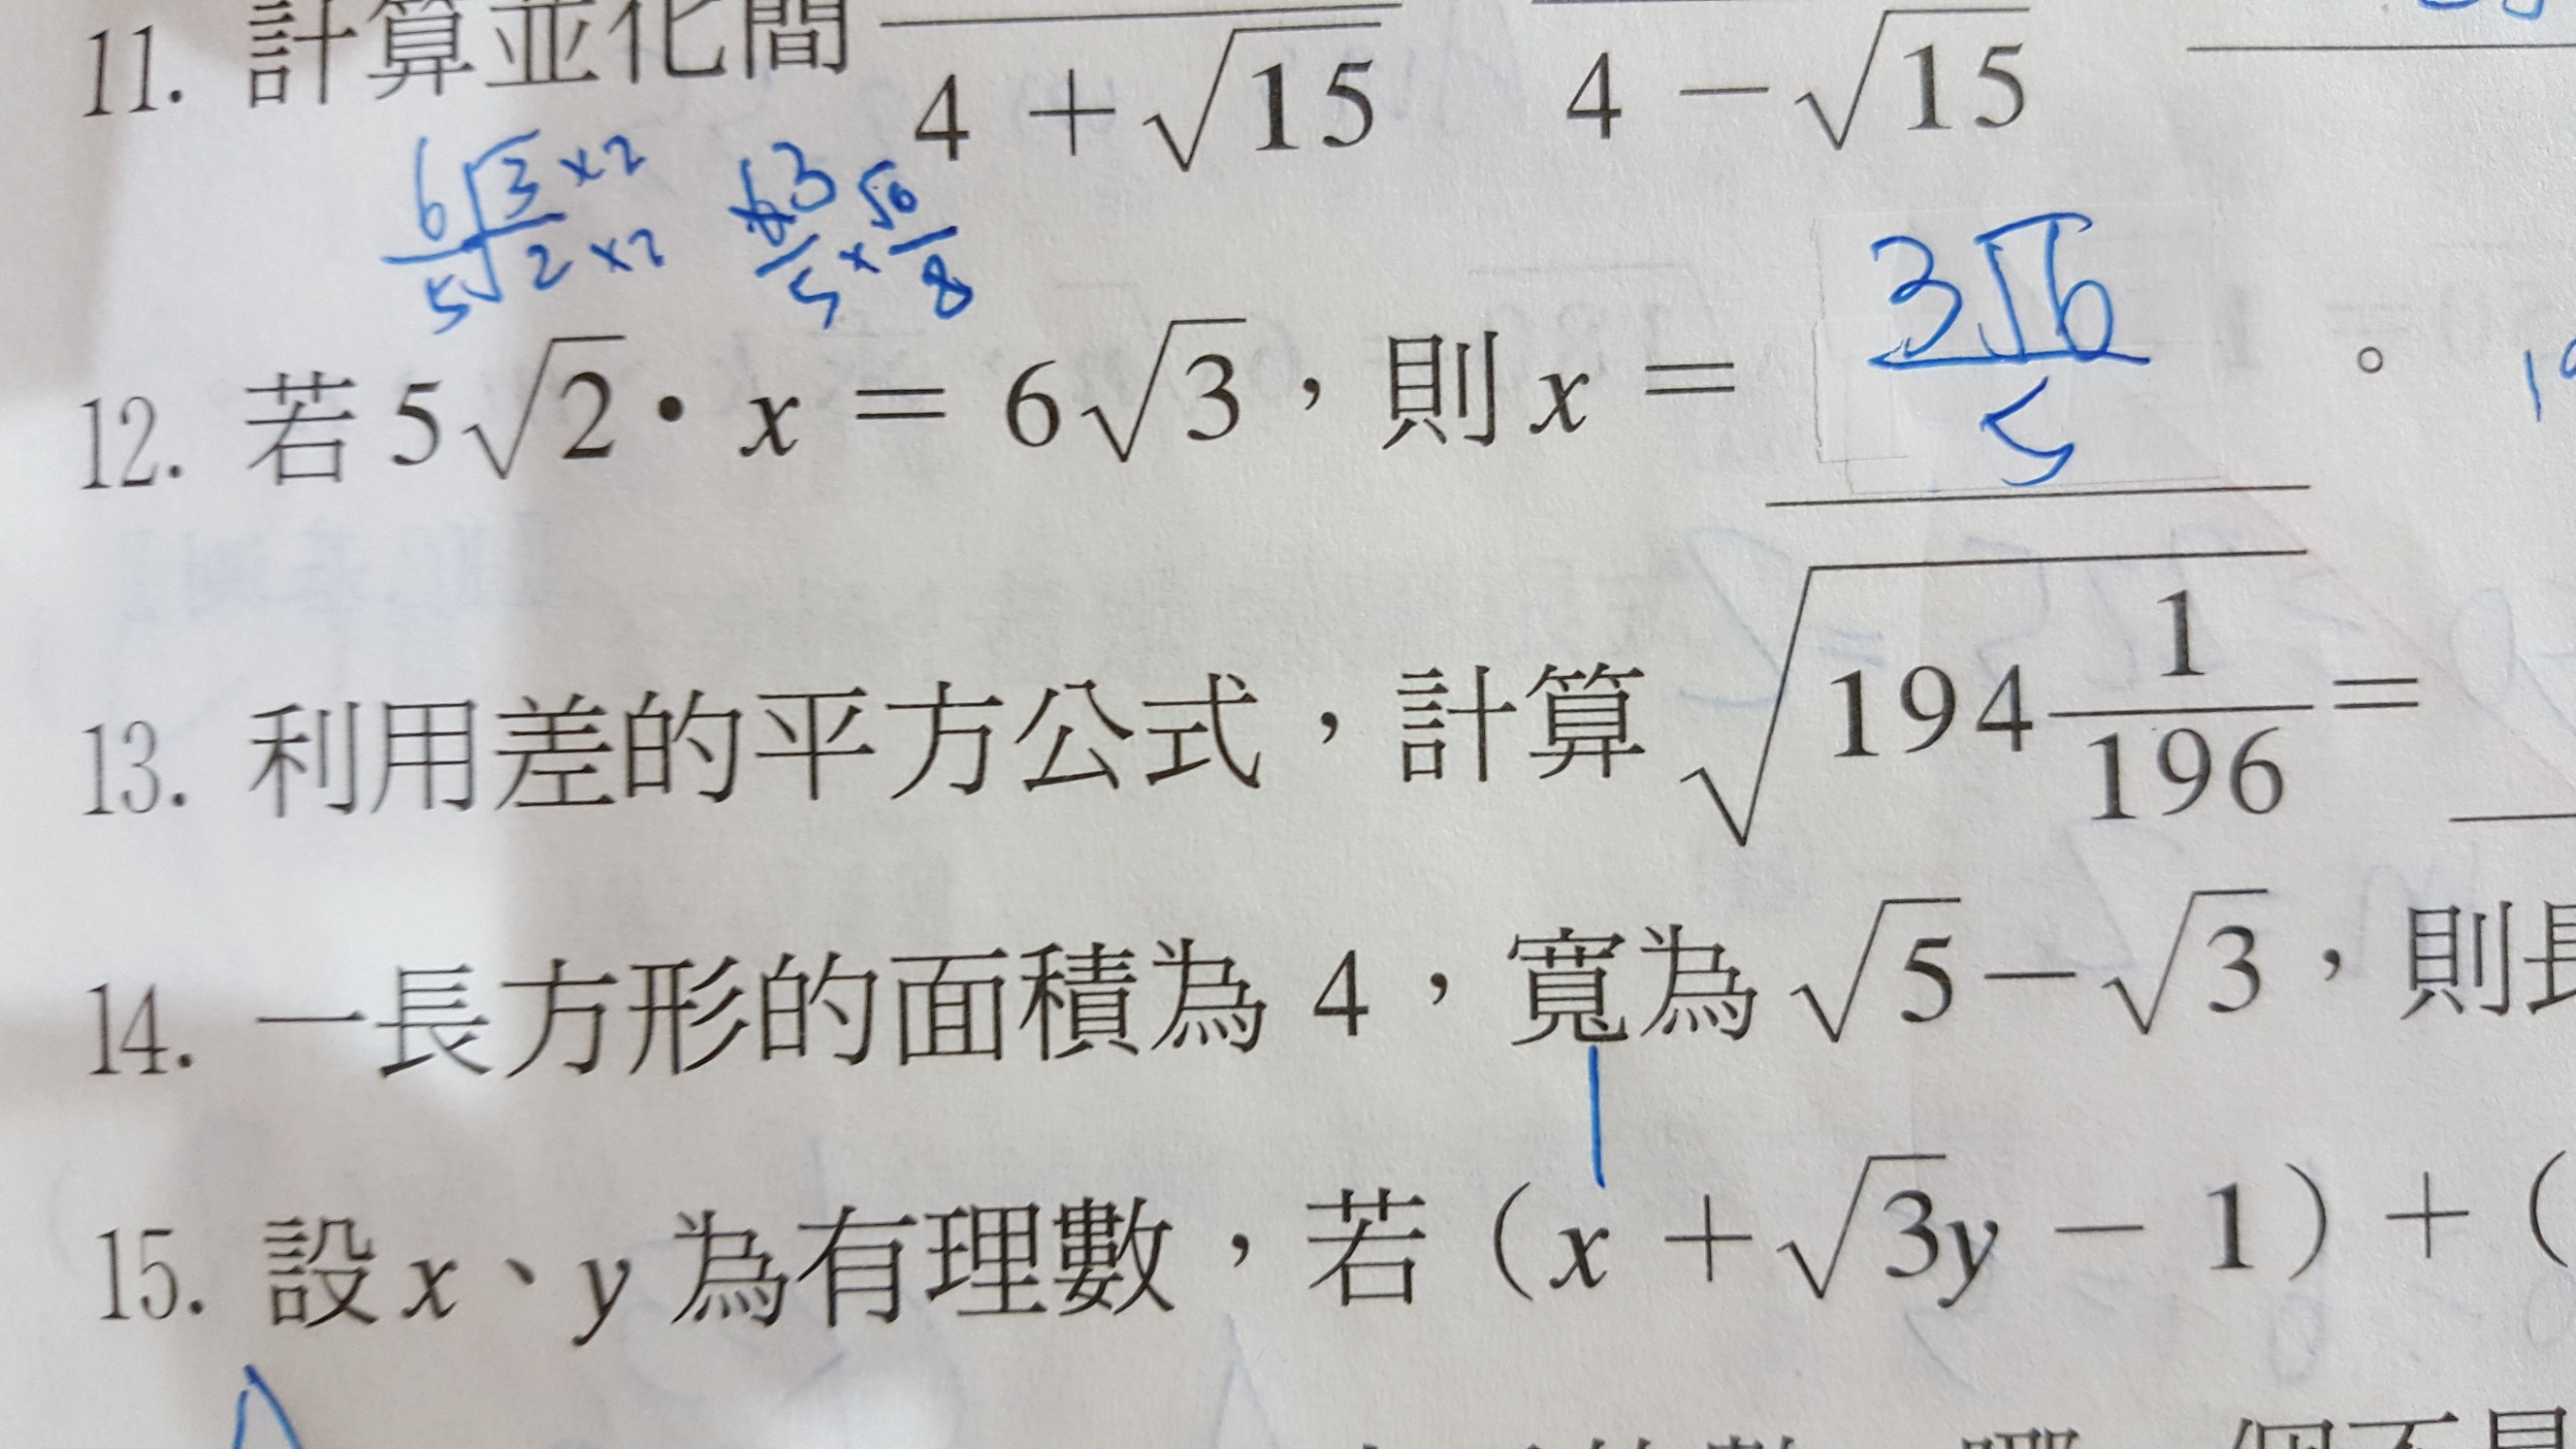 11. 計算並化簡 4 + √15 4 − √15
6√3 × 2 63 √6
5√2 × 2 5 × 8
3√6
12. 若 5√2 · x = 6√3，則 x = 5 。
13. 利用差的平方公式，計算 √(194 1/196) =
14. 一長方形的面積為 4，寬為 √5 − √3，則長
15. 設 x、y 為有理數，若（x + √3y − 1）+（